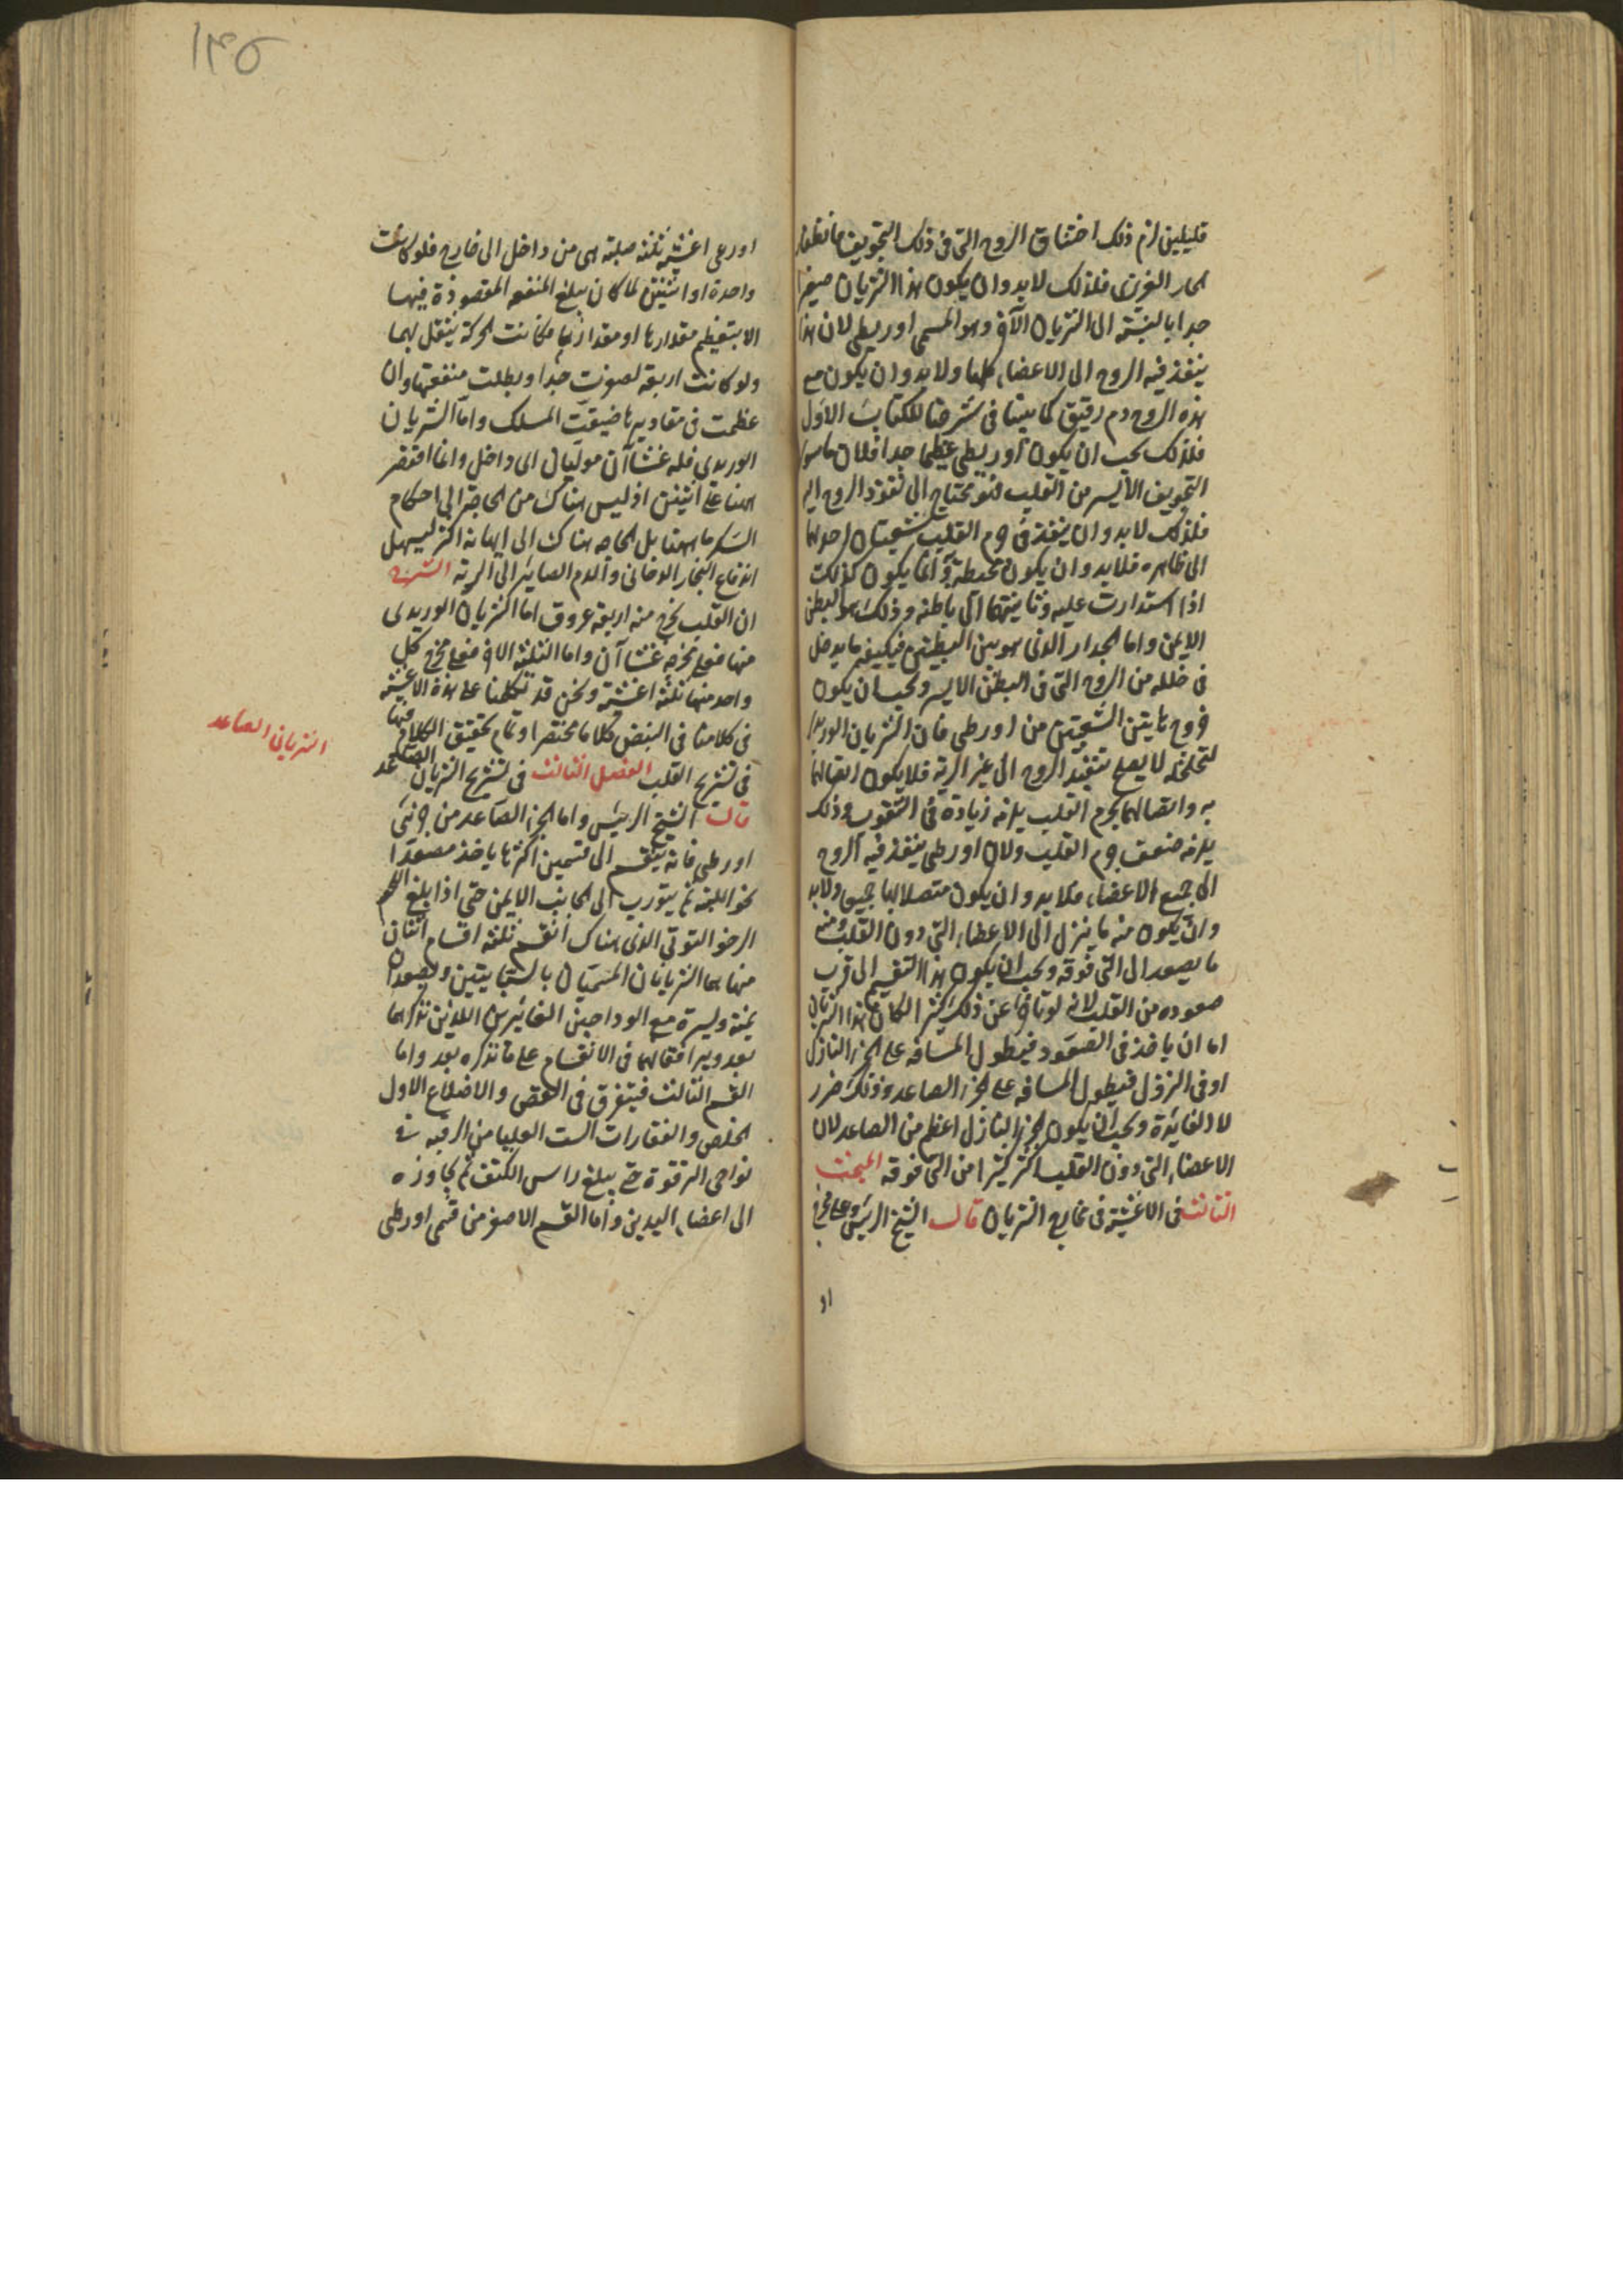 قليلين لزم ذلك اختناق الروح التى فى ذلك التجويف
الحار الغريزى فلذلك لابد وان يكون هذا الشريان صغيرا
جدا بالنسبة الى الشريان الآخر وهو المسمى اورطى لان هذا
ينفذ فيه الروح الى الاعضاء كلها ولا بد وان يكون مع
هذه الروح دم رقيق كما بينا فى شرحنا للكتاب الاول
فلذلك يجب ان يكون اورطى عظيما جدا
التجويف الايسر من القلب فهو محتاج الى نفوذ الروح اليه
فلذلك لابد وان ينفذ فى جرم القلب شعبتان احديهما
الى ظاهره فلابد وان يكون محيطة وانما يكون كذلك
اذا استدارت عليه وثانيتهما الى باطنه وذلك هو البطن
الايمن واما الجدار الذى هو بين البطينين فيكفيه ما يدخل
فى خلله من الروح التى فى البطن الايسر ويجب ان يكون
خروج هاتين الشعبتين من اورطى فان الشريان الوريدى
لتخلخله لا يصلح لتنفيذ الروح الى غير الرية فلا يكون اتصالهما
به واتصالهما بجرم القلب يلزمه زيادة فى الثقوب وذلك
يلزمه ضعف جرم القلب ولان اورطى ينفذ فيه الروح
الى جميع الاعضاء فلا بد وان يكون متصلا بها جميعا ولابد
وان يكون منه ما ينزل الى الاعضاء التى دون القلب ومنه
ما يصعد الى التى فوقه ويجب ان يكون هذا التقسيم الى قرب
صعوده من القلب لانه لو تأخر عن ذلك كثيرا لكان هذا الشريان
اما ان ياخذ فى الصعود فيطول المسافه على الجزء النازل
او فى النزول فيطول المسافه على الجزء الصاعد وذلك ضرر
لا لفايدة ويجب ان يكون الجزء النازل اعظم من الصاعد لان
الاعضاء التى دون القلب اكثر كثيرا من التى فوقه المبحث
الثالث فى الاغشية فى مخارج الشريان قال الشيخ الرئيس وعلى مخرج
او
١٣٥
اورطى اغشية ثلثة صلبة هى من داخل الى خارج فلو كانت
واحدة او اثنتين لما كان يبلغ المنفعه المقصودة فيها
الا بتعظيم مقدارها او مقداريهما فكانت الحركة يثقل بهما
ولو كانت اربعة لصغرت جدا وبطلت منفعتها وان
عظمت فى مقاديرها ضيقت المسلك واما الشريان
الوريدى فله غشاآن موليان الى داخل وانما اقتصر
ههنا على اثنين اذ ليس هناك من الحاجة الى احكام
السكر ما ههنا بل الحاجه هناك الى ايهانه اكثر ليسهل
اندفاع البخار الدخانى والدم الصاير الى الرية الشرح
ان القلب يخرج منه اربعة عروق اما الشريان الوريدى
منها فعلى مخرجه غشاآن واما الثلثة الاخر فعلى مخرج كل
واحد منها ثلثة اغشية ونحن قد تكلمنا على هذه الاغشية
فى كلامنا فى النبض كلاما مختصرا وتمام تحقيق الكلام فيها
فى تشريح القلب الفصل الثالث فى تشريح الشريان الصاعد
قال الشيخ الرئيس واما الجزء الصاعد من جزئى
اورطى فانه ينقسم الى قسمين اكثرها ياخذ مصعدا
نحو اللبة ثم يتورب الى الجانب الايمن حتى اذا بلغ اللحم
الرخو التوثى الذى هناك انقسم ثلثة اقسام اثنان
منها هما الشريانان المسميان بالسباتيين ويصعدان
يمنة ويسرة مع الوداجين الغائرين اللذين نذكرهما
بعد ويرافقانهما فى الانقسام على ما نذكره بعد واما
القسم الثالث فيتفرق فى القص والاضلاع الاول
الخلص والفقارات الست العليا من الرقبه فى
نواحى الترقوة حتى يبلغ راس الكتف ثم يجاوزه
الى اعضاء اليدين واما القسم الاصغر من قسمى اورطى
الشريان الصاعد